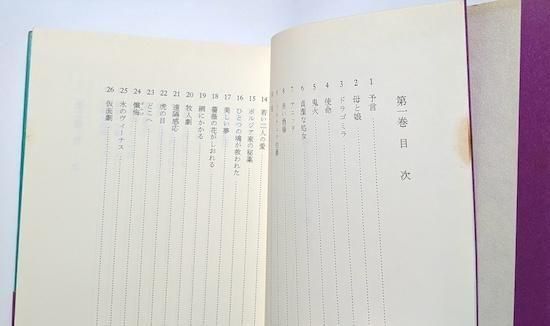 第一巻 目次
1 予言
2 母と娘
3 ドラゴミラ
4 使命
5 鬼火
6 貞潔な処女
7
8
14 若い二人の愛
15 ボルジア家の秘薬
16 ひとつの魂が救われた
17 美しい夢
18 薔薇の花がしおれる
19 網にかかる
20 牧人劇
21 遠隔感応
22 虎の目
23 どこへ
24 懺悔
25 氷のヴィーナス
26 仮面劇